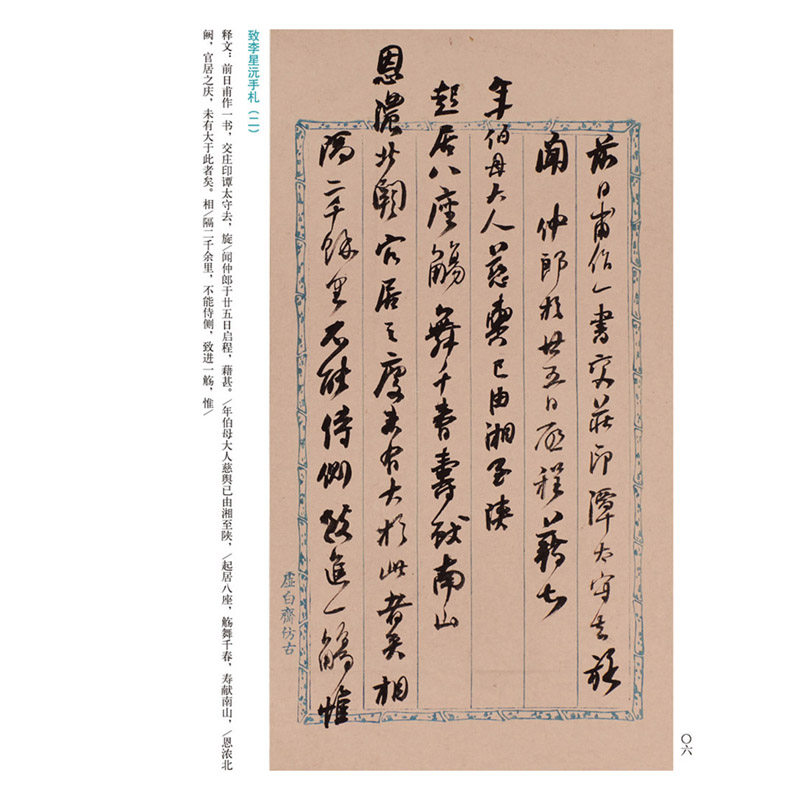 前日甫作一書交莊印潭太守去旋
聞 仲郎於廿五日啟程藉
年伯母大人慈輿已由湘至陝
起居八座觴舞千春壽獻南山
恩濃北闕官居之慶未有大於此者矣相
隔二千餘里不能侍側致進一觴惟
虛白齋仿古
致李星沅手札（二）
释文：前日甫作一书，交庄印谭太守去，旋/闻仲郎于廿五日启程，藉甚。/年伯母大人慈舆已由湘至陕，/起居八座，觞舞千春，寿献南山，/恩浓北
阙，官居之庆，未有大于此者矣。相/隔二千余里，不能侍侧，致进一觞，惟/
〇六